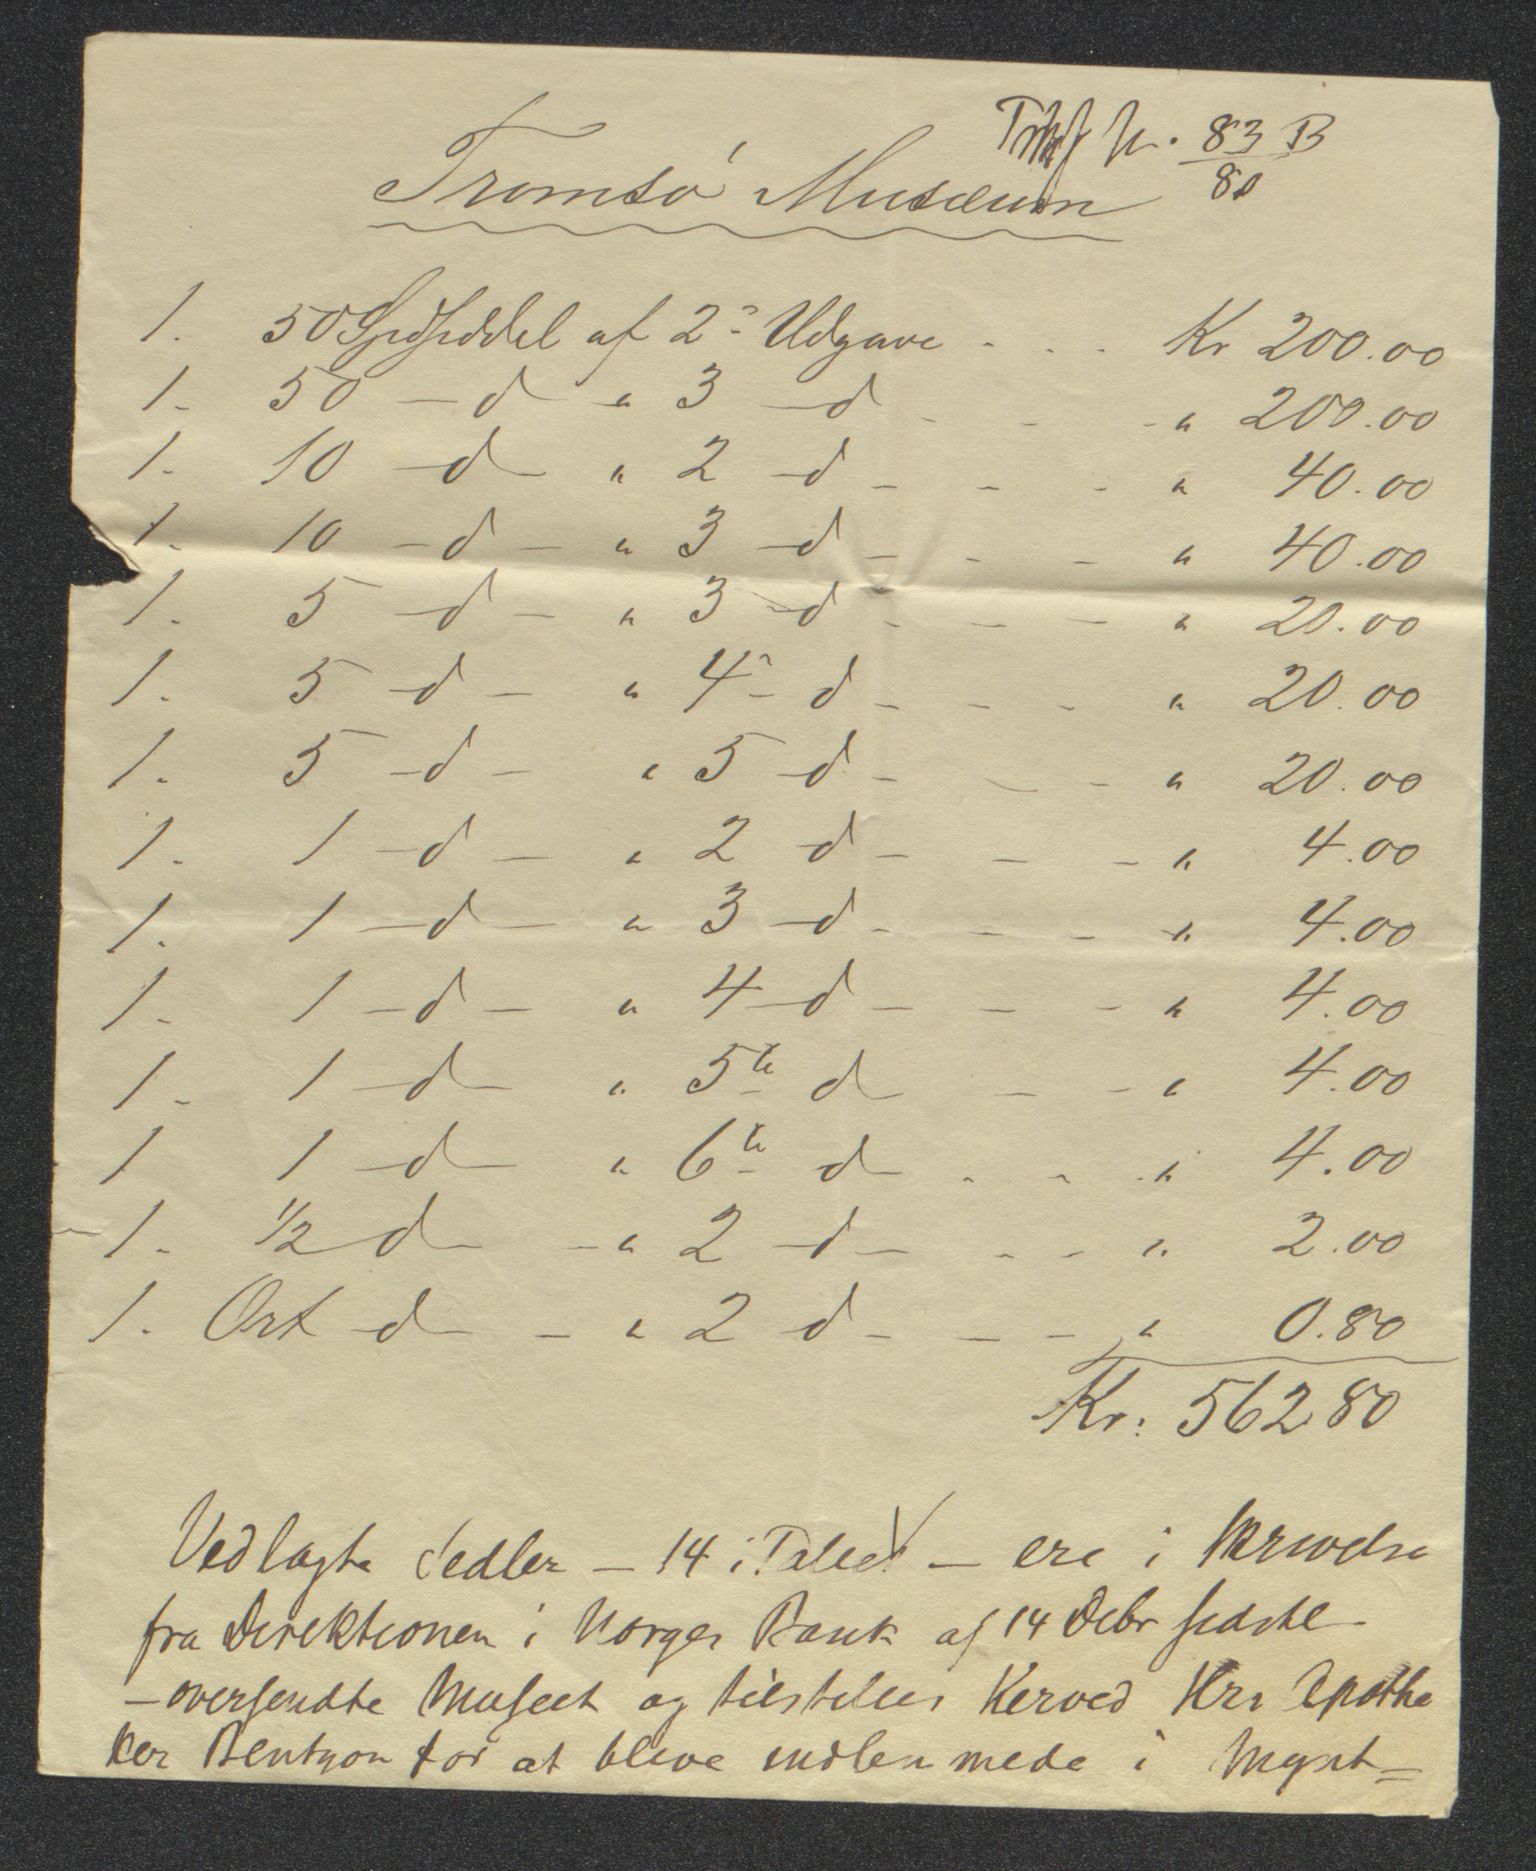 No. 83 B
80
Tromsø Musæum
1. 50 Spdseddel af 2den Udgave - - - Kr 200.00
1. 50 — d „ 3 — d - - - „ 200.00
1. 10 — d — „ 2 — d - - - „ 40.00
1. 10 — d — „ 3 — d - - - „ 40.00
1. 5 — d — „ 3 — d - - - „ 20.00
1. 5 — d — „ 4 — d - - - „ 20.00
1. 5 — d — „ 5 — d - - - „ 20.00
1. 1 — d — „ 2 d - - - „ 4.00
1. 1 — d — „ 3 — d - - - „ 4.00
1. 1 — d — „ 4 — d - - - „ 4.00
1. 1 — d — „ 5te d - - - „ 4.00
1 1 — d — „ 6te d - - - „ 4.00
1. 1/2 d — „ 2 — d - - - „ 2.00
1. Ort — d — „ 2 d - - - „ 0.80
Kr: 562.80
Vedlagte Sedler — 14 i Tallet — ere i Skrivelse
fra Direktionen i Norges Bank af 14 Debr sidstl.
— oversendte Museet og tilstilles herved Hrr Apothe
ker Bentzon for at blive indlemmede i Mynt=